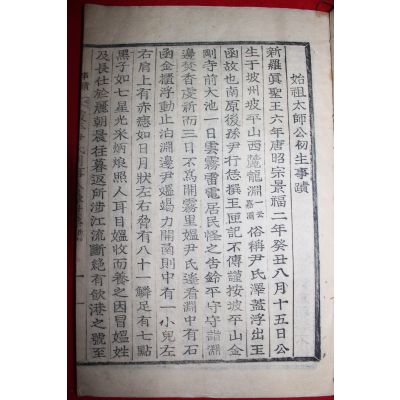 始祖太師公初生事蹟
新羅眞聖王六年唐昭宗景福二年癸丑八月十五日公
生于坡州坡平山西麓龍淵一云嘉淵俗稱尹氏澤蓋浮出玉
函故也南原後孫尹行恁撰玉匣記不傳謹按坡平山金
剛寺前大池一日雲霧雷電居民怪之告鈴平守守詣淵
邊焚香虔祈而三日不爲開霧里媼尹氏遙看淵中有石
函金櫃浮動止泊淵邊尹媼竭力開函則中有一小兒左
右肩上有赤痣如日月狀左右脅有八十一鱗足有七點
黑子如七星光采炳煥照人耳目媼收而養之因冒媼姓
及長仕於麗朝晨往暮返所涉江流斷絶有飮港之號至